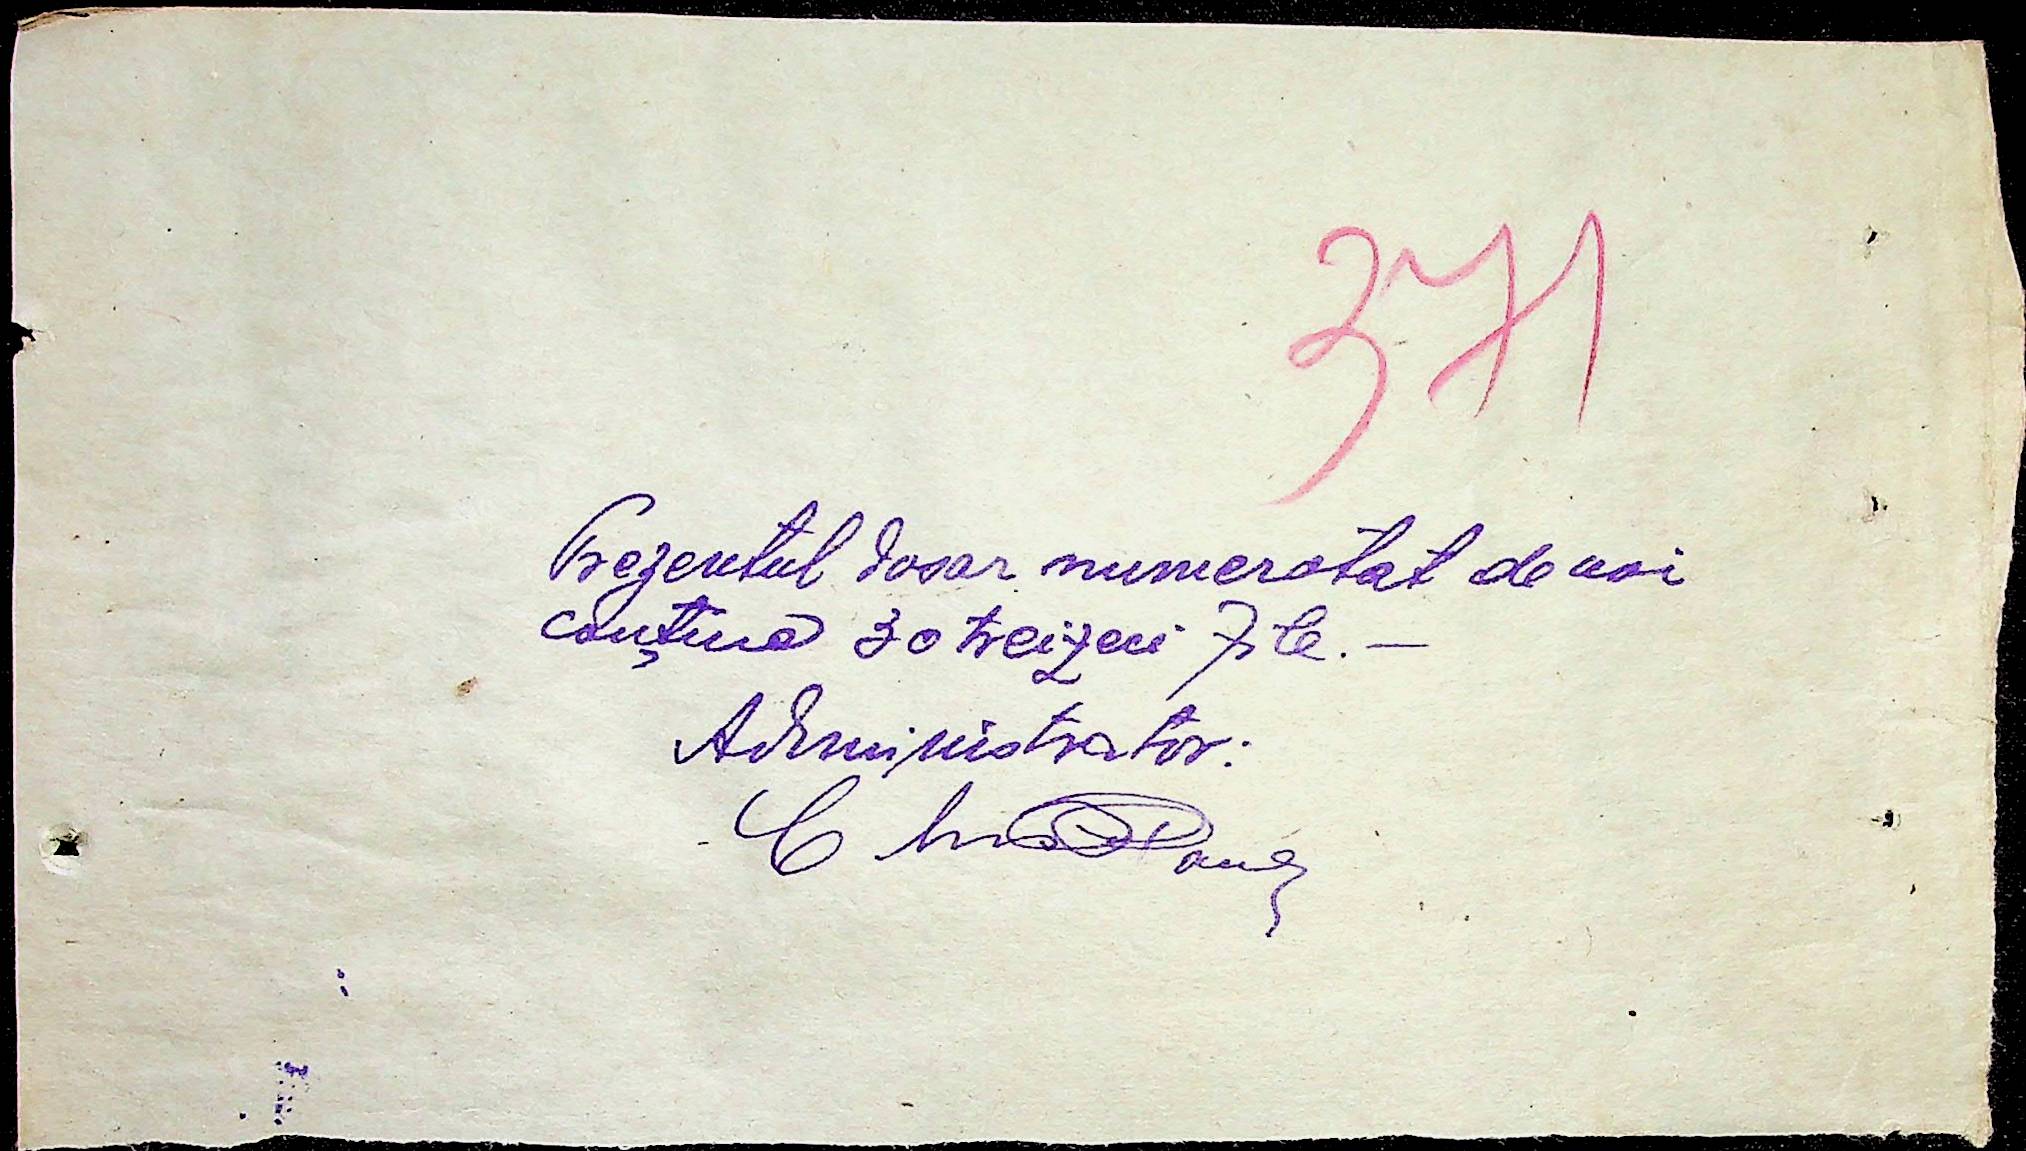 371
Prezentul dosar numerotat de noi
conține 30 treizeci file. —
Administrator: